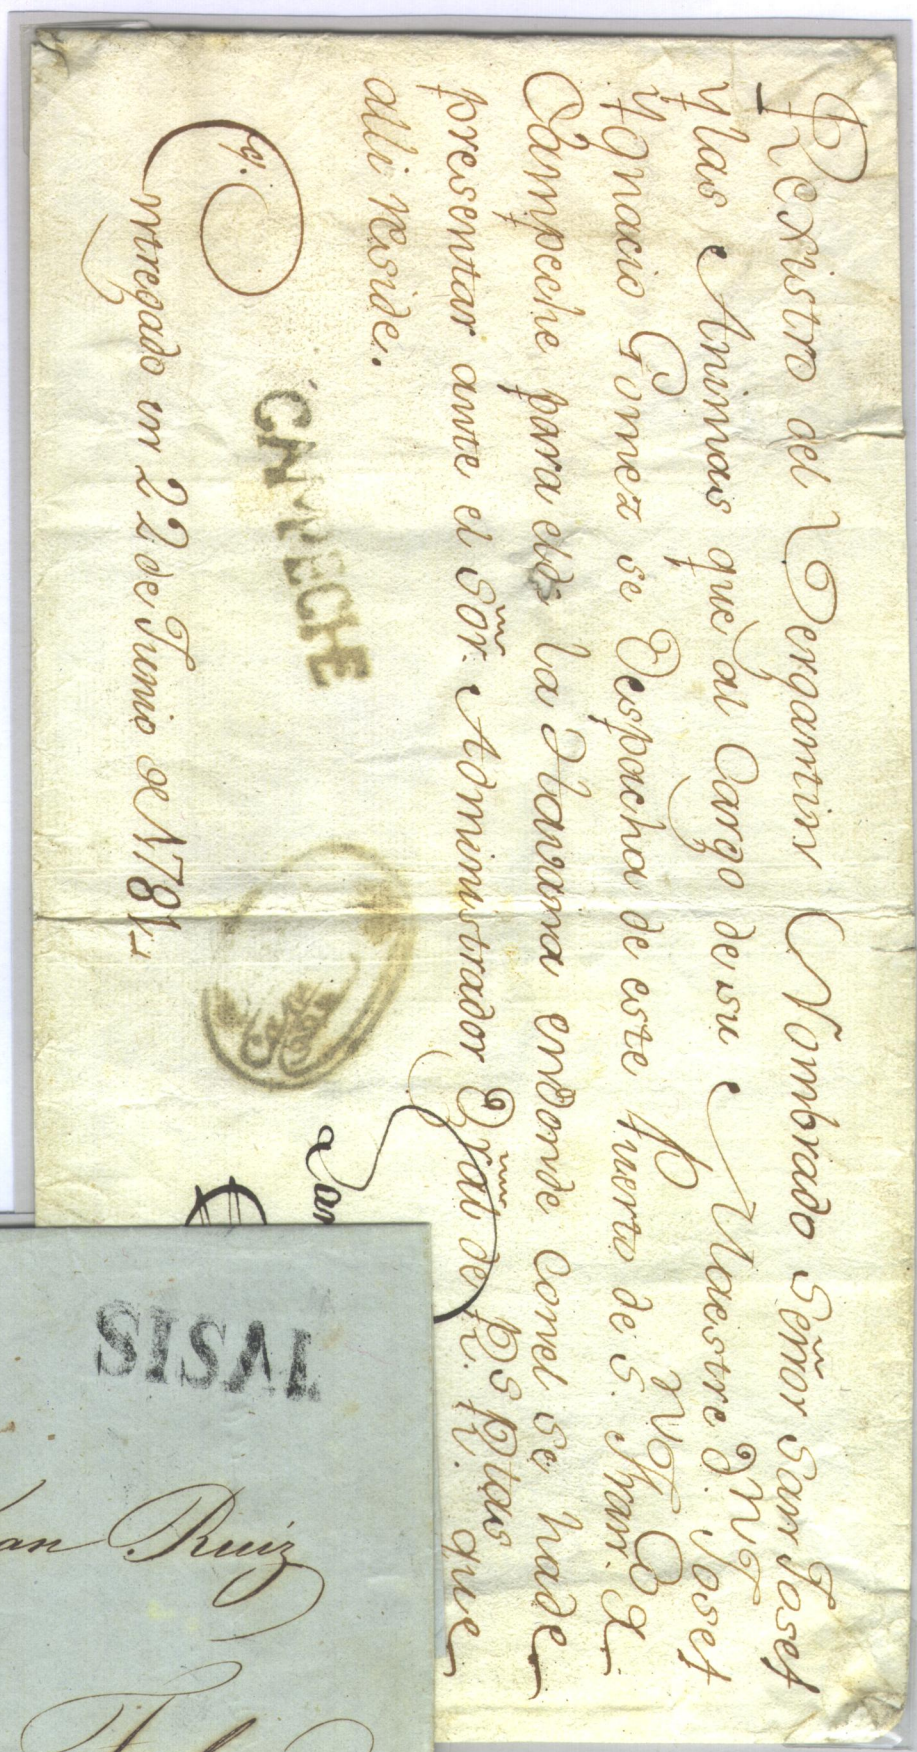 Rexistro del Vergantin Nombrado Señor San Josef
y las Animas que al Cargo de su Maestre D. Josef
Ygnacio Gomez se Despacha de este Puerto de S. Fran.
Campeche para el de la Havana en donde con el se hade
presentar ante el Sōr. Administrador Gr̄al de R. R. que
alli reside.
CAMPECHE
Entregado en 22 de Junio de 1781
SISAL
an Ruiz